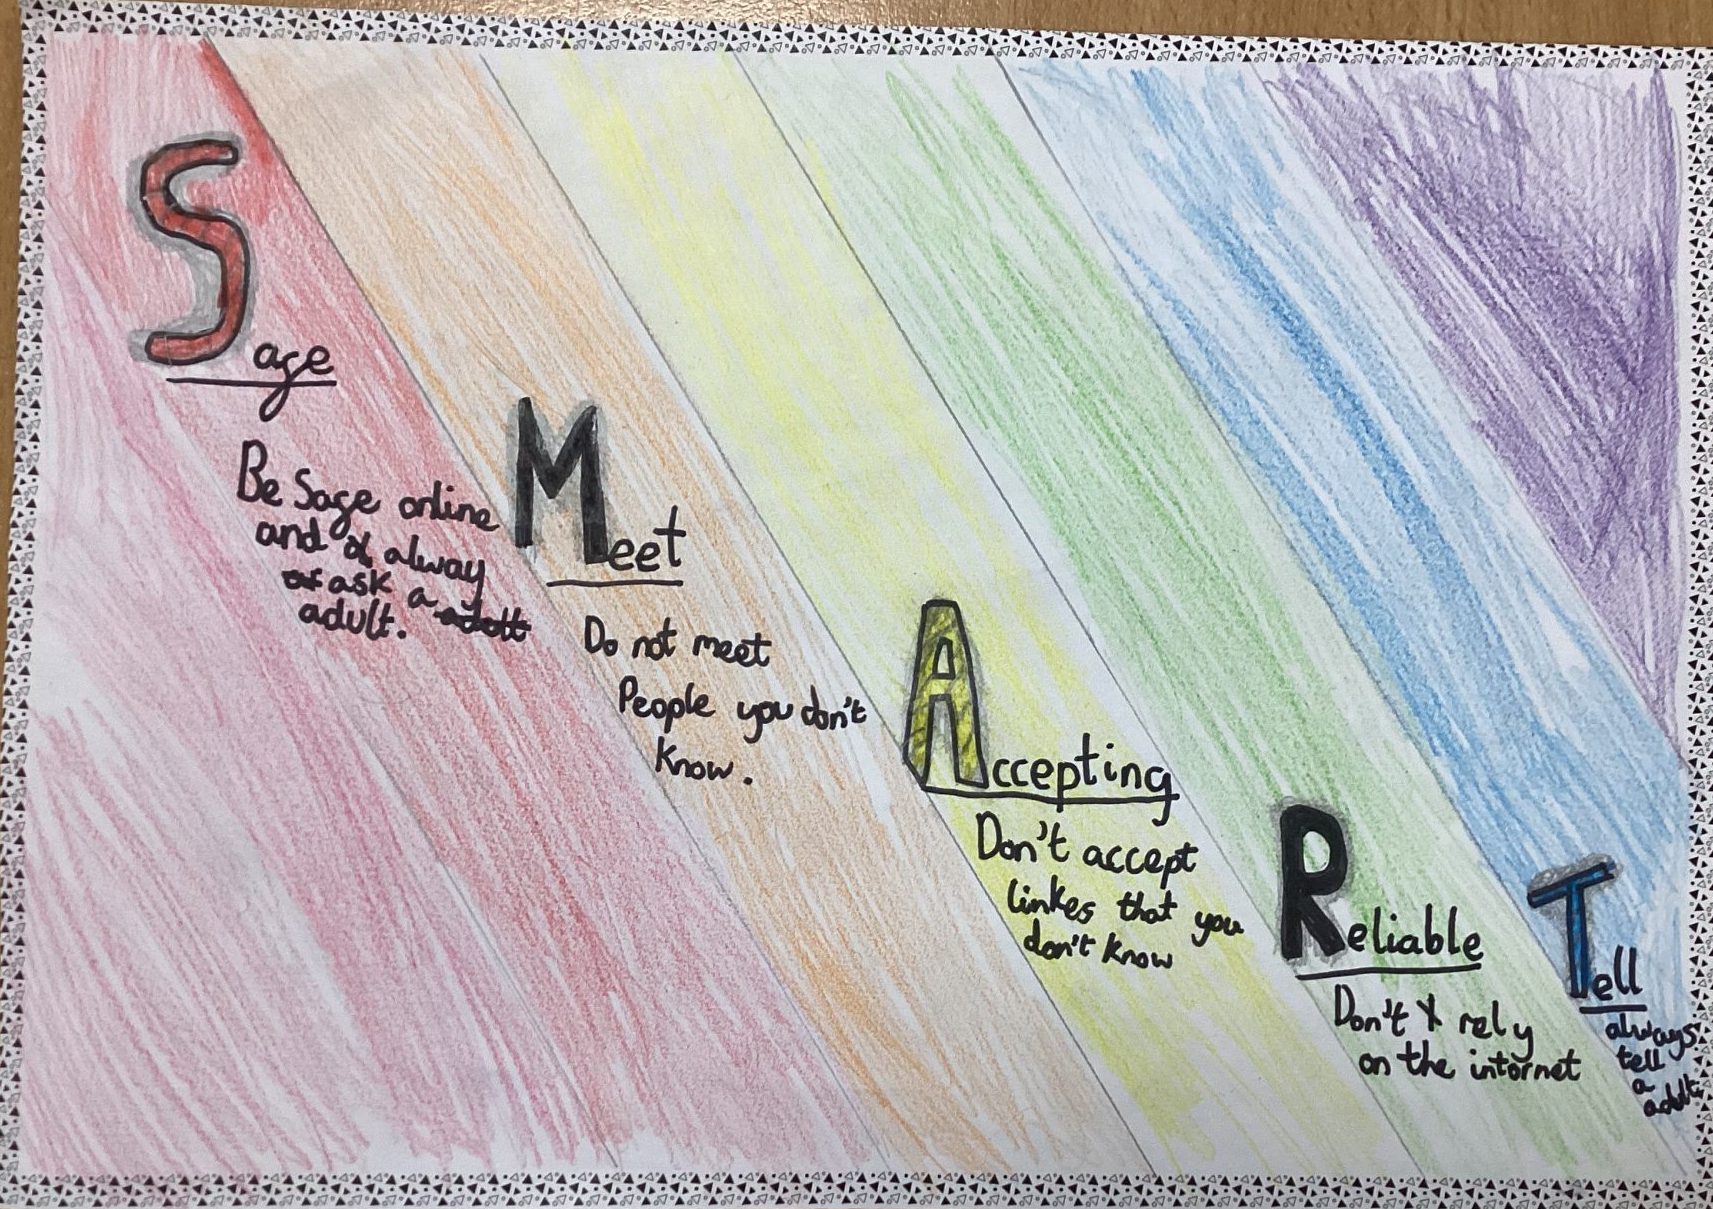 Sage
Be Sage online
and alway
ask a
adult.
Meet
Do not meet
People you don't
know.
Accepting
Don't accept
linkes that you
don't know
Reliable
Don't rely
on the intornet
Tell
always
tell
a
adult